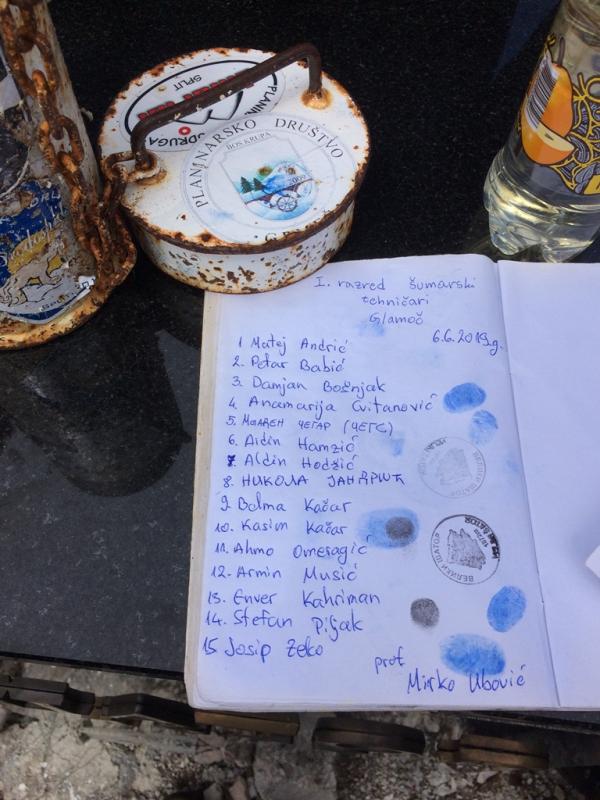 SPLIT
PLANINARSKO DRUŠTVO
BOS.KRUPA
2009
I. razred šumarski
tehničari
Glamoč
6.6.2019.g.
1 Matej Andrić
2. Petar Babić
3. Damjan Bošnjak
4. Anamarija Cvitanović
5. Младен ЧЕГАР (ЧЕГС)
6. Aidin Hamzić
7. Aldin Hodžić
8. НИКОЛА ЈАНДРИЋ
9. Belma Kačar
10. Kasim Kačar
11. Ahmo Omeragić
12. Armin Musić
13. Enver Kahriman
14. Stefan Piljak
15 Josip Zeko
prof
Mirko Ubović
ВЕЛИКИ ШАТОР
ВЕЛИКИ ШАТОР